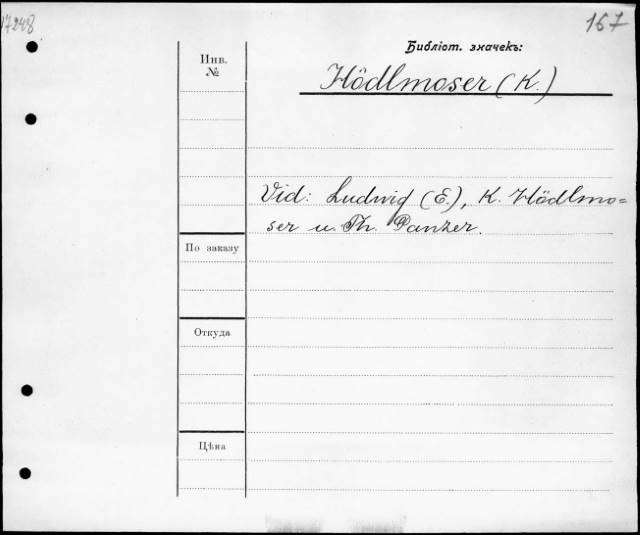 17248
167
Библіот. значекъ:
Инв.
№
Hödlmoser (K.)
Vid: Ludwig (E.), K. Hödlmo=
ser u. Th. Panzer.
По заказу
Откуда
Цѣна